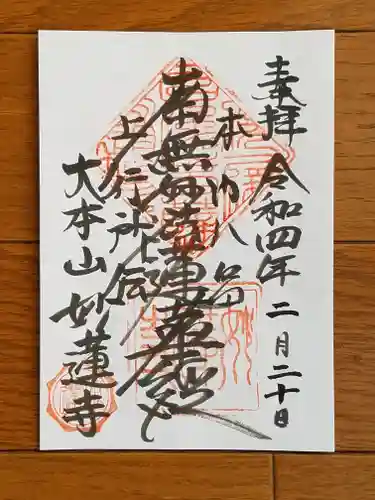 奉拝
令和四年 二月二十日
本門八品
南無妙法蓮華經
上行所伝
大本山 妙蓮寺